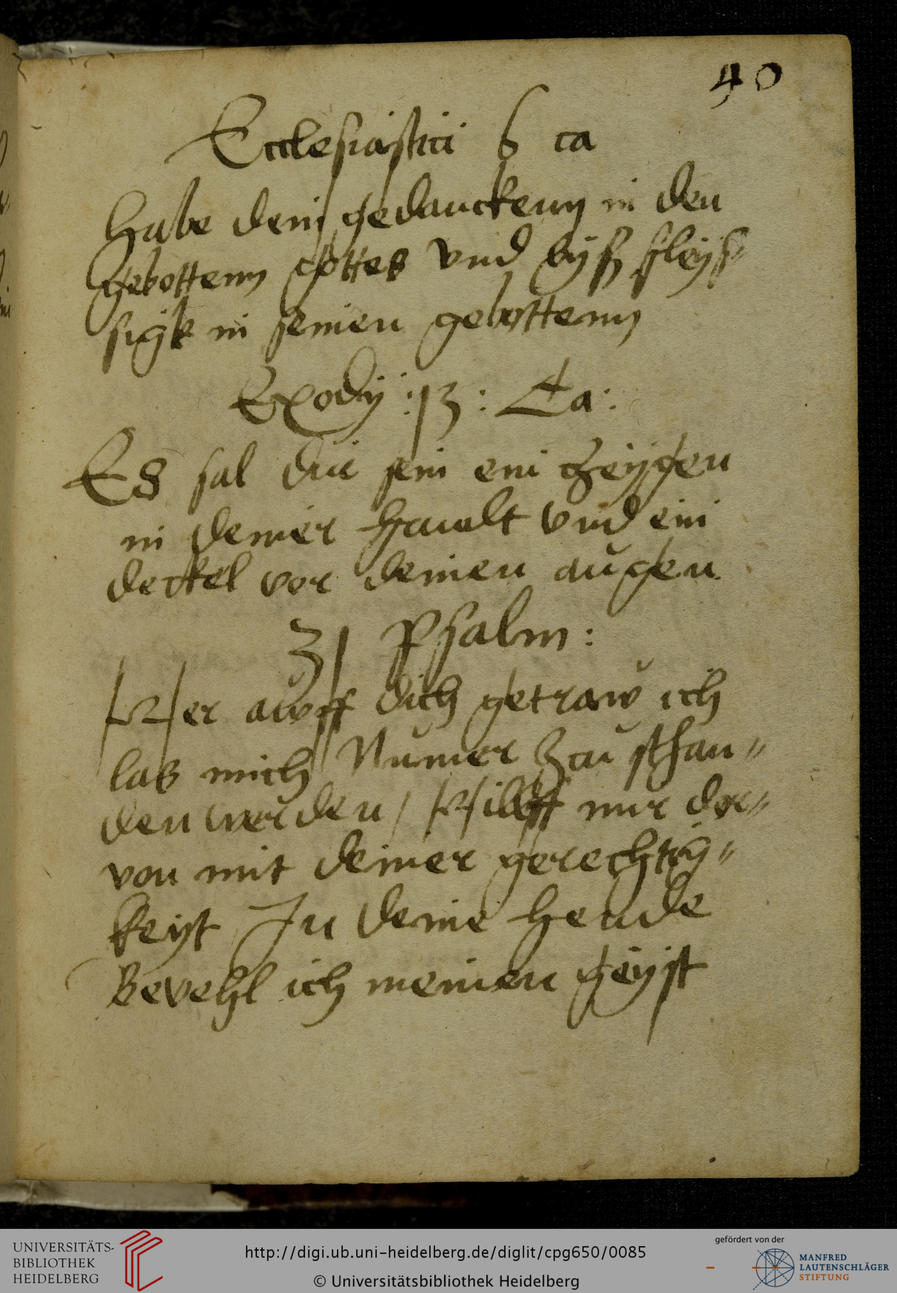 40
Ecclesiastici 6 ca
Habe dein gedanckenn in den
gebottenn gottes vnd byß fleyß-
sigk in seinen gebottenn
Exody : 13 : Ca :
Es sal dir sein ein czeygen
in deiner handt vnd ein
deckel vor deinen augen
31 Psalm :
Her auff dich getraw ich
las mich Numer zcu schan=
den werden / Hilff mir dor=
von mit deiner gerechtig=
keyt In deine hende
Bevehl ich meinen geyst
UNIVERSITÄTS-
BIBLIOTHEK
HEIDELBERG
http://digi.ub.uni-heidelberg.de/diglit/cpg650/0085
© Universitätsbibliothek Heidelberg
gefördert von der
MANFRED
LAUTENSCHLÄGER
STIFTUNG